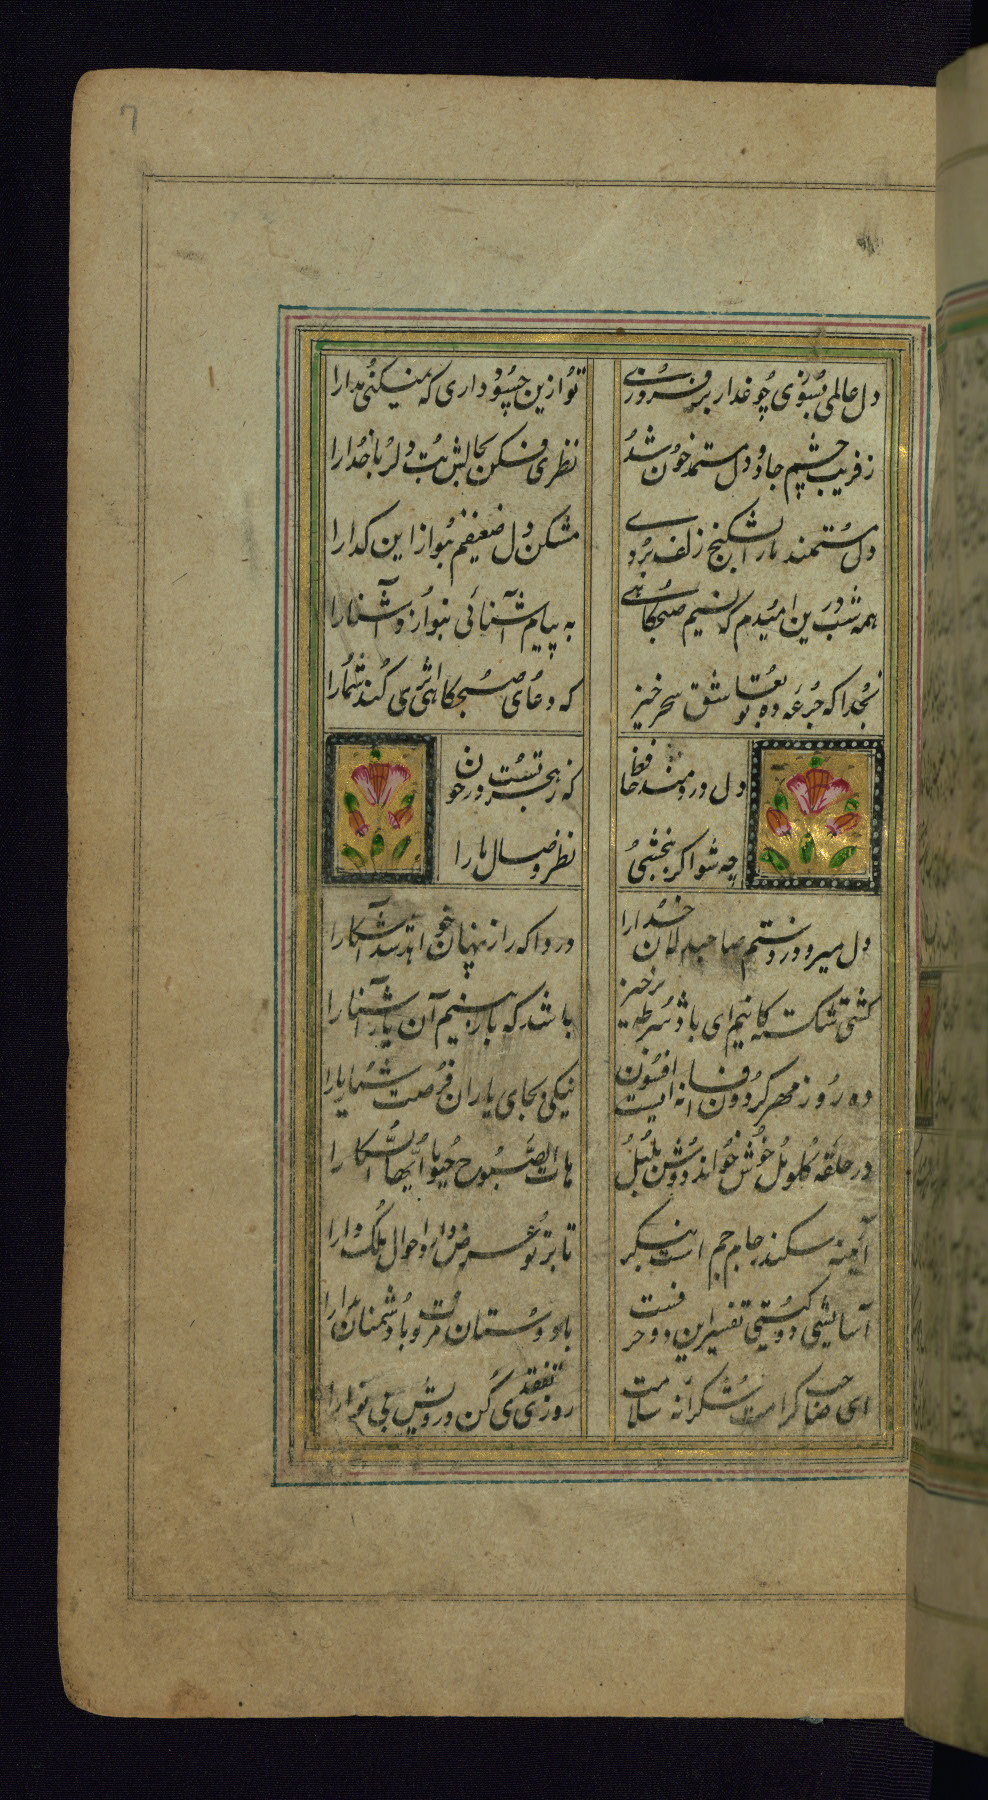 7
دل عالمی بسوزی چو عذار برفروزی تو ازین چه سود داری که نمیکنی مدارا
ز فریب چشم جادو دل مستمند خون شد نظری فکن بحالش بت دلربا خدارا
دل مستمند ما را بشکنج زلف بردی مشکن دل ضعیفم بنواز این گدا را
همه شب درین امیدم که نسیم صبحگاهی به پیام آشنائی بنوازد آشنا را
بخدا که جرعه ده تو بعاشق سحرخیز که دعای صبحگاهی اثری کند شما را
دل دردمند حافظ که ز هجر تست در خون
چه شود اگر ببخشی نظر وصال ما را
دل میرود ز دستم صاحبدلان خدا را دردا که راز پنهان خواهد شد آشکارا
کشتی شکستگانیم ای باد شرطه برخیز باشد که باز بینیم آن یار آشنا را
ده روز مهر گردون افسانه ایست افسون نیکی بجای یاران فرصت شمار یارا
در حلقه گل و مل خوش خواند دوش بلبل هات الصبوح حیوا یا ایها السکارا
آیینه سکندر جام جم است بنگر تا بر تو عرض دارد احوال ملک دارا
آسایش دو گیتی تفسیر این دو حرفست با دوستان مروت با دشمنان مدارا
ای صاحب کرامت شکرانه سلامت روزی تفقدی کن درویش بی نوا را